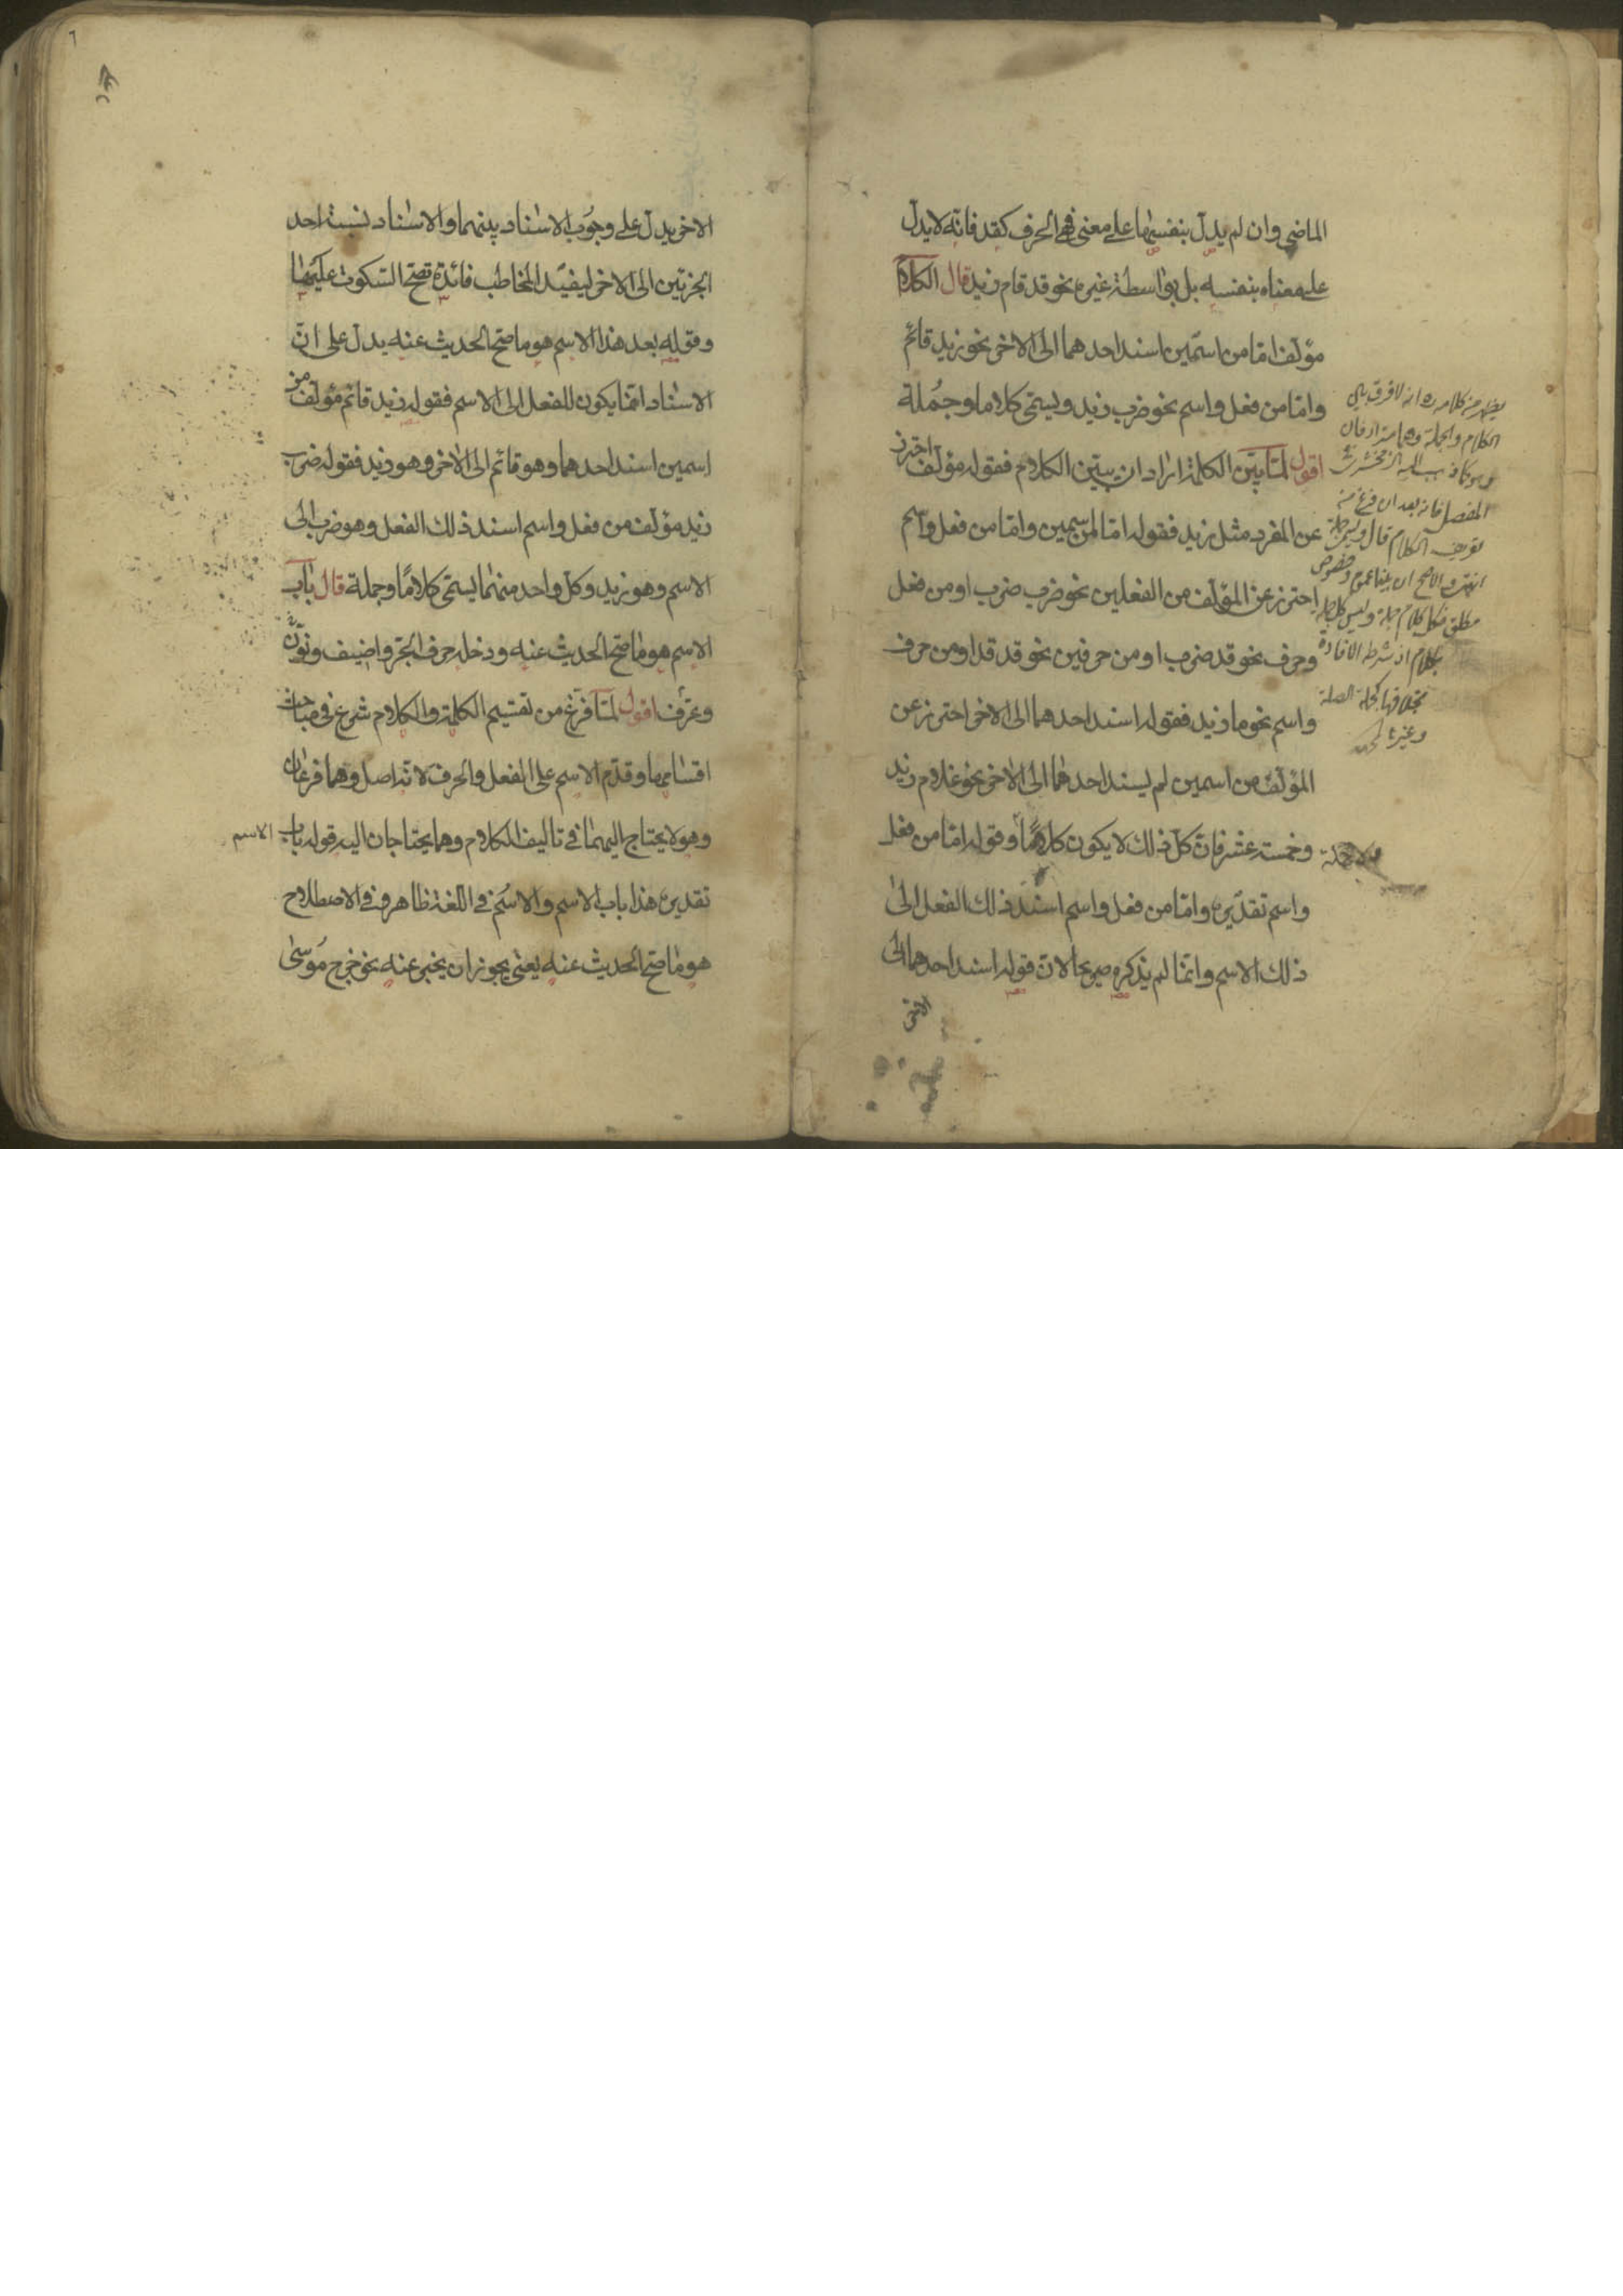 الماضي وان لم يدل بنفسها على معنى فهي الحرف كقد فانه لا يدل
على معناه بنفسه بل بواسطة غيره نحو قد قام زيد قال الكلام
مؤلف اما من اسمين اسند احدهما الى الاخر نحو زيد قائم
واما من فعل واسم نحو ضرب زيد ويسمى كلاما وجملة
اقول لما بين الكلمة اراد ان يبين الكلام فقوله مؤلف احترز
عن المفرد مثل زيد فقوله اما من اسمين واما من فعل واسم
احترز عن المؤلف من الفعلين نحو ضرب ضرب او من فعل
وحرف نحو قد ضرب او من حرفين نحو قد قد او من حرف
واسم نحو ما زيد فقوله اسند احدهما الى الاخر احترز عن
المؤلف من اسمين لم يسند احدهما الى الاخر نحو غلام زيد
وخمسة عشر فان كل ذلك لا يكون كلاما وقوله اما من فعل
واسم تقديره واما من فعل واسم اسند ذلك الفعل الى
ذلك الاسم وانما لم يذكره صريحا لان قوله اسند احدهما الى
الاخر
يظهر من كلامه ره انه لا فرق بين
الكلام والجملة وهما مترادفان
وهو ما ذهب اليه الزمخشري في
المفصل فانه بعد ان فرغ من
تعريف الكلام قال ويسمى جملة
انتهى والاصح ان بينهما عموم وخصوص
مطلق فكل كلام جملة وليس كل جملة
بكلام اذ شرطه الافادة
بخلافها كجملة الصلة
وغيرها
٦
الاخر يدل على وجوب الاسناد بينهما والاسناد نسبة احد
الجزئين الى الاخر ليفيد المخاطب فائدة تصح السكوت عليها
وقوله بعد هذا الاسم هو ما صح الحديث عنه يدل على ان
الاسناد انما يكون للفعل الى الاسم فقوله زيد قائم مؤلف من
اسمين اسند احدهما وهو قائم الى الاخر وهو زيد فقوله ضرب
زيد مؤلف من فعل واسم اسند ذلك الفعل وهو ضرب الى
الاسم وهو زيد وكل واحد منهما يسمى كلاما وجملة قال باب
الاسم هو ما صح الحديث عنه ودخله حرف الجر واضيف ونون
وعرف اقول لما فرغ من تقسيم الكلمة والكلام شرع في مباحث
اقسامها وقدم الاسم على الفعل والحرف لانه اصل وهما فرعان
وهو لا يحتاج اليهما في تاليف الكلام وهما يحتاجان اليه قوله باب الاسم
تقديره هذا باب الاسم والاسم في اللغة ظاهر وفي الاصطلاح
هو ما صح الحديث عنه يعني يجوز ان يخبر عنه نحو خرج موسى